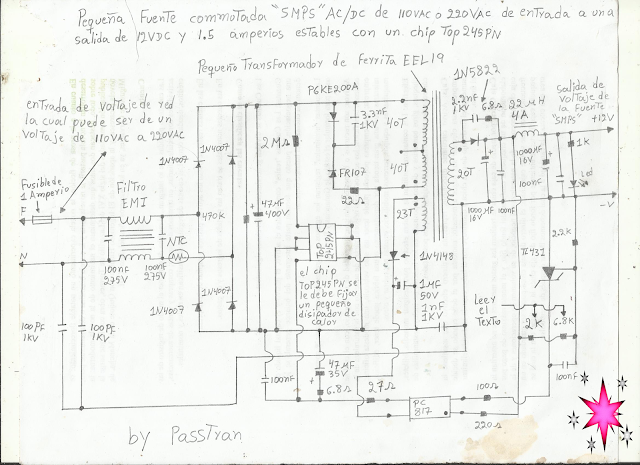 Pequeña Fuente conmutada "SMPS" AC/DC de 110VAC o 220VAC de entrada a una
salida de 12VDC y 1.5 amperios estables con un chip Top245PN
Pequeño Transformador de Ferrita EEL19
P6KE200A
1N5822
entrada de Voltaje de red
la cual puede ser de un
Voltaje de 110VAC a 220VAC
2.2nF
1KV
6.8Ω
22MH
4A
Salida
de Voltaje de
la Fuente
"SMPS"
+12V
3.3nF
1KV
40T
2MΩ
1N4007
1N4007
1000MF
16V
1K
Led
Fusible de
1 Amperio
F
Filtro
EMI
40T
FR107
22Ω
20T
100nF
-V
47MF
400V
470K
23T
1000MF
16V
100nF
NTC
TOP
245PN
2.2K
N
100nF
275V
100nF
275V
1N4148
TL431
el chip
TOP245PN se
le debe Fijar
un pequeño
disipador de
calor
1MF
50V
1N4007
1N4007
1nF
1KV
Leer
el
Texto
2K
6.8K
100PF
1KV
100PF
1KV
100nF
47MF
35V
6.8Ω
27Ω
PC
817
100Ω
220Ω
100nF
by PassTran